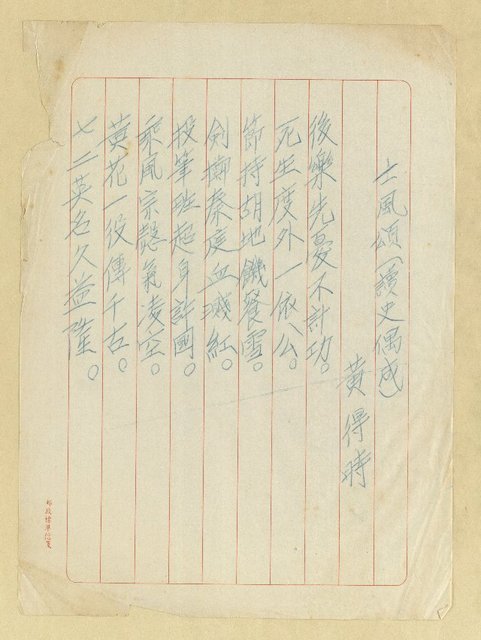 士風頌(讀史偶感)
黃得時
後樂先憂不計功。
死生度外一依公。
節持胡地饑餐雪。
劍擲秦庭血濺紅。
投筆班超身許國。
乘風宗慤氣凌空。
黃花一役傳千古。
七二英名久益隆。
郵政標準信箋